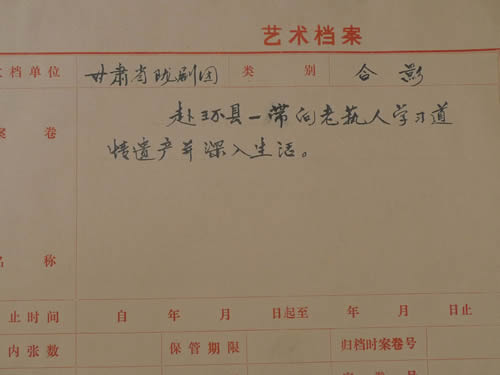 艺术档案
文档单位 甘肃省陇剧团 类别 合影
案卷 赴环县一带向老执人学习道
情遗产并深入生活。
名称
止时间 自 年 月 日起至 年 月 日止
内张数 保管期限 归档时案卷号